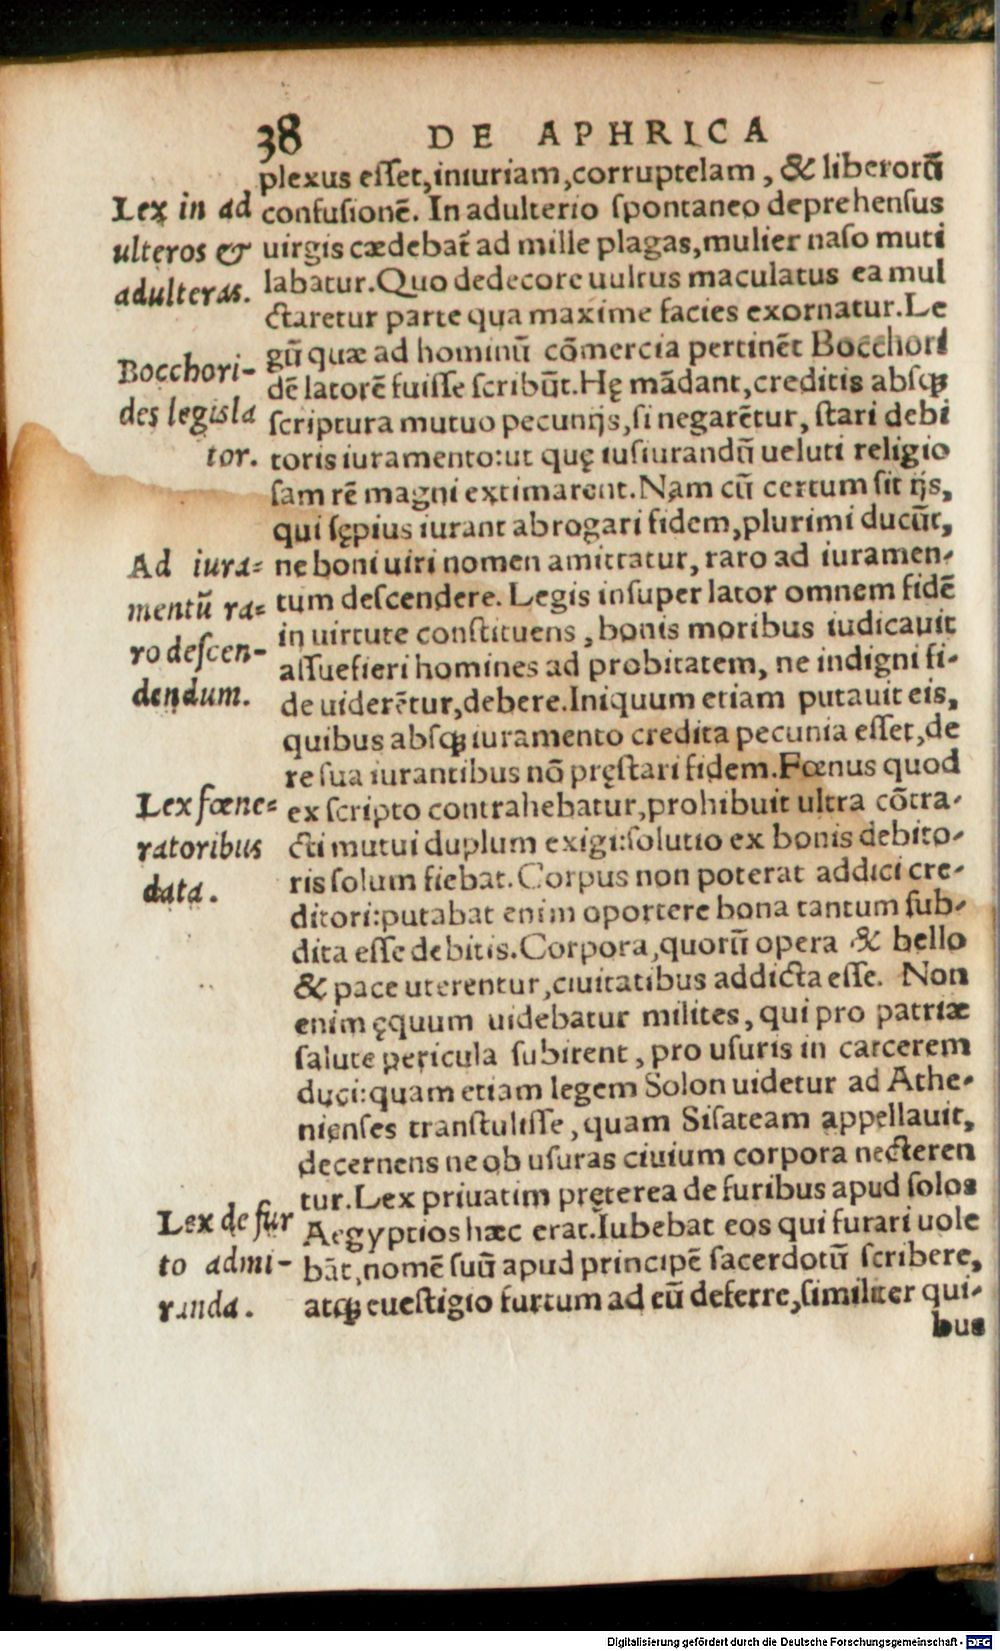 38 DE APHRICA
plexus esſet, iniuriam, corruptelam, & liberorũ
confusionẽ. In adulterio ſpontaneo deprehenſus
uirgis cædebat̃ ad mille plagas, mulier naſo muti
labatur. Quo dedecore uultus maculatus ea mul
ctaretur parte qua maxime facies exornatur. Le
gũ quæ ad hominũ cõmercia pertinẽt Bocchori
dẽ latorẽ fuiſſe ſcribũt. Hę mãdant, creditis abſqꝫ
ſcriptura mutuo pecunijs, ſi negarẽtur, ſtari debi
toris iuramento: ut quę iuſiurandũ ueluti religio
ſam rẽ magni extimarent. Nam cũ certum ſit ijs,
qui ſępius iurant abrogari fidem, plurimi ducũt,
ne boni uiri nomen amittatur, raro ad iuramen-
tum deſcendere. Legis inſuper lator omnem fidẽ
in uirtute conſtituens, bonis moribus iudicauit
aſſuefieri homines ad probitatem, ne indigni fi-
de uiderẽtur, debere. Iniquum etiam putauit eis,
quibus abſqꝫ iuramento credita pecunia eſſet, de
re ſua iurantibus nõ pręſtari fidem. Fœnus quod
ex ſcripto contrahebatur, prohibuit ultra cõtra-
cti mutui duplum exigi: ſolutio ex bonis debito-
ris ſolum fiebat. Corpus non poterat addici cre-
ditori: putabat enim oportere bona tantum ſub-
dita eſſe debitis. Corpora, quorũ opera & bello
& pace uterentur, ciuitatibus addicta eſſe. Non
enim ęquum uidebatur milites, qui pro patriæ
ſalute pericula ſubirent, pro uſuris in carcerem
duci: quam etiam legem Solon uidetur ad Athe-
nienſes tranſtuliſſe, quam Siſateam appellauit,
decernens ne ob uſuras ciuium corpora necteren
tur. Lex priuatim pręterea de furibus apud ſolos
Aegyptios hæc erat. Iubebat eos qui furari uole
bãt, nomẽ ſuũ apud principẽ ſacerdotũ ſcribere,
atqꝫ eueſtigio furtum ad eũ deferre, ſimiliter qui-
bus
Lex in ad
ulteros &
adulteras.
Bocchori-
des legisla
tor.
Ad iura-
mentũ ra-
ro deſcen-
dendum.
Lex fœne-
ratoribus
data.
Lex de fur
to admi-
randa.
Digitalisierung gefördert durch die Deutsche Forschungsgemeinschaft - DFG